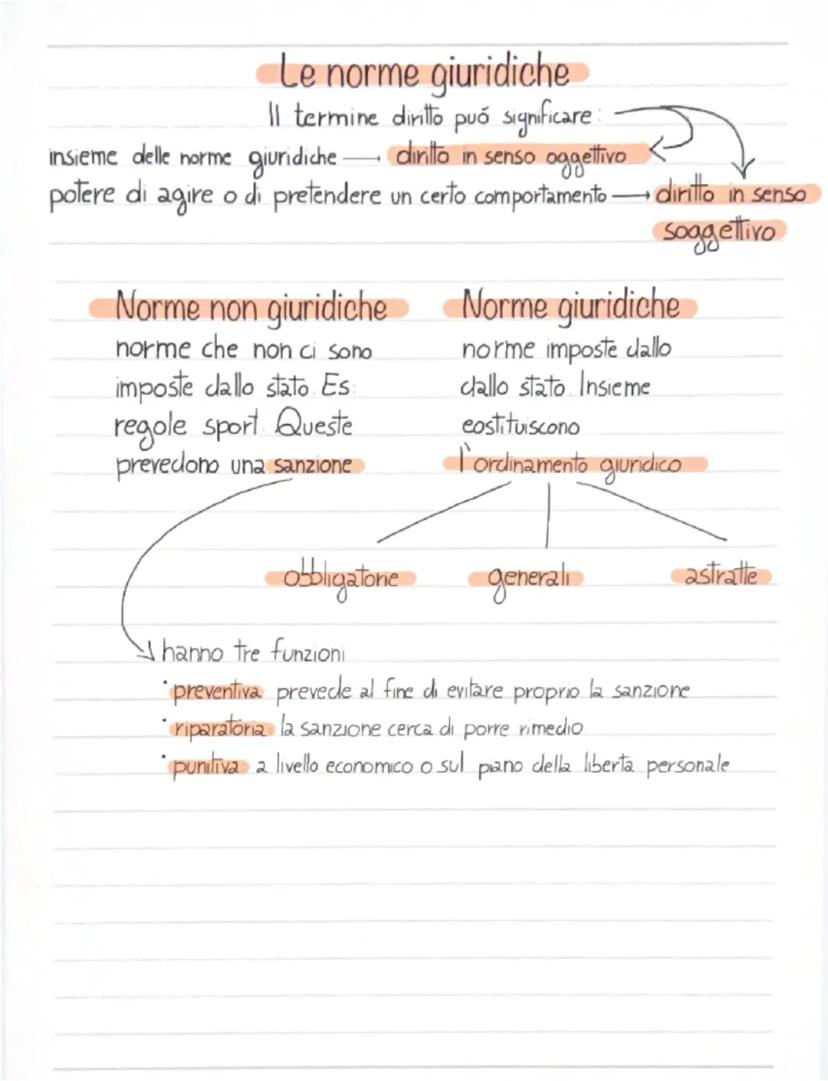 Le norme giuridiche
Il termine diritto puó significare:
insieme delle norme giuridiche → diritto in senso oggettivo
potere di agire o di pretendere un certo comportamento → diritto in senso
soggettivo
Norme non giuridiche
norme che non ci sono
imposte dallo stato. Es:
regole sport. Queste
prevedono una sanzione
Norme giuridiche
norme imposte dallo
dallo stato. Insieme
costituiscono
l'ordinamento giuridico
obbligatorie generali astratte
hanno tre funzioni
• preventiva prevede al fine di evitare proprio la sanzione
• riparatoria la sanzione cerca di porre rimedio
• punitiva a livello economico o sul piano della libertà personale